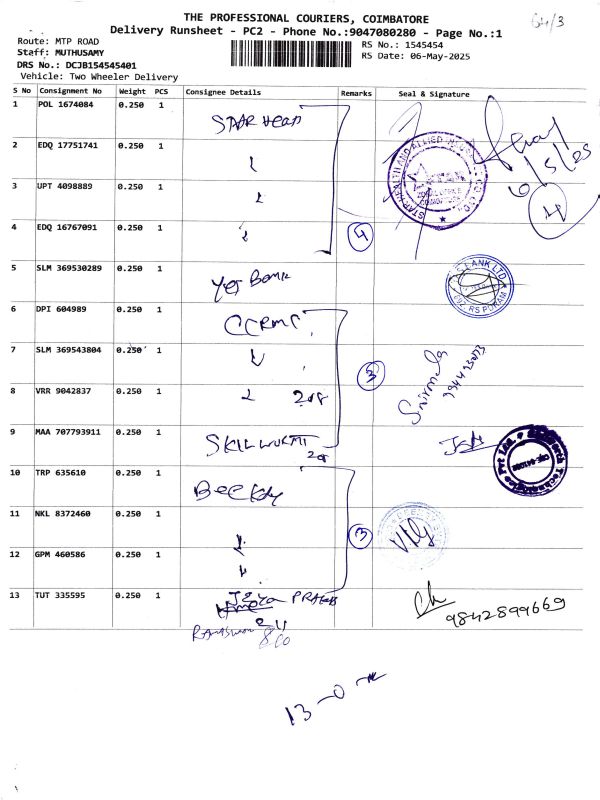 THE PROFESSIONAL COURIERS, COIMBATORE
64/3
Delivery Runsheet - PC2 - Phone No.:9047080280 - Page No.:1
Route: MTP ROAD
RS No.: 1545454
Staff: MUTHUSAMY
RS Date: 06-May-2025
DRS No.: DCJB154545401
Vehicle: Two Wheeler Delivery
S No Consignment No Weight PCS Consignee Details Remarks Seal & Signature
1 POL 1674084 0.250 1 STAR HEAD
2 EDQ 17751741 0.250 1
6/5/25
3 UPT 4098889 0.250 1
4
4 EDQ 16767091 0.250 1 4
5 SLM 369530289 0.250 1 Yes Bank
RS PURAM
6 DPI 604989 0.250 1
7 SLM 369543804 0.250 1 3
8 VRR 9042837 0.250 1 208
Nirmala
9 MAA 707793911 0.250 1 208
10 TRP 635610 0.250 1
11 NKL 8372460 0.250 1 3
12 GPM 460586 0.250 1
13 TUT 335595 0.250 1
9842899669
13-0-